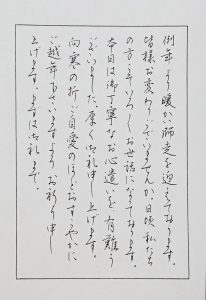 例年より暖かい師走を迎えております。
皆様お変わりございませんか。日頃私たち
の方こそいろいろお世話になっております。
本日は御丁寧なお心遣いを有難う
ございました。厚く御礼申し上げます。
向寒の折ご自愛のほどおすこやかに
ご越年なさいますようお祈り申し
上げます。まずは御礼まで。